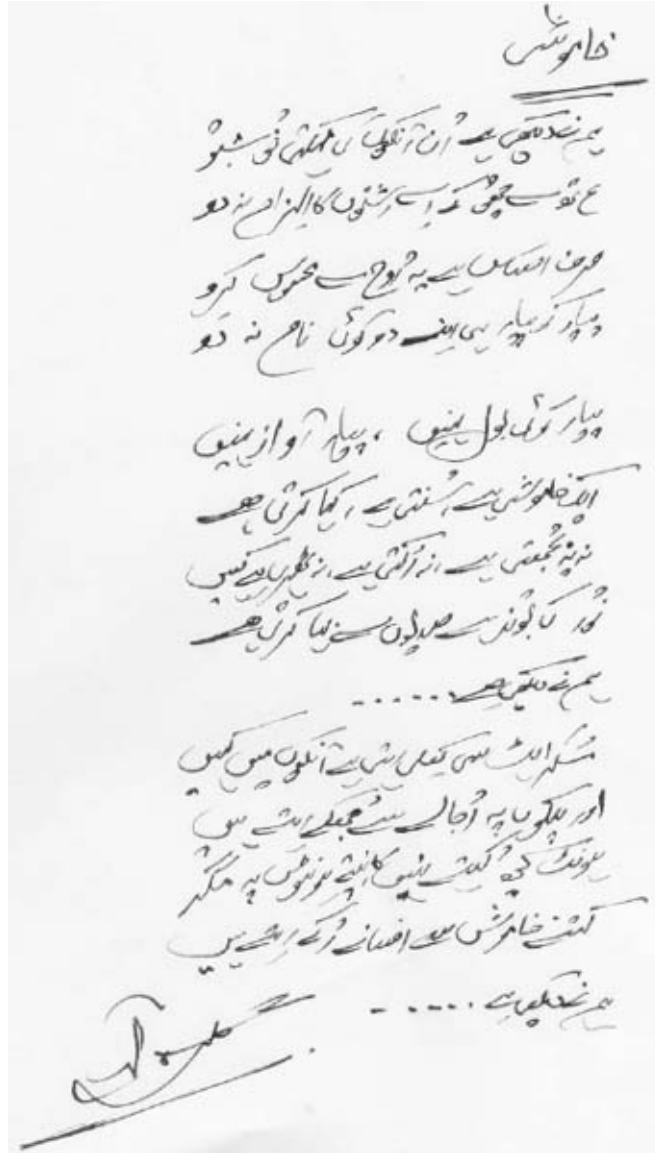 خاموشی
ہم نے دیکھی ہے اُن آنکھوں کی مہکتی خوشبو
ہاتھ سے چھو کے اِسے رشتوں کا الزام نہ دو
صرف احساس ہے یہ رُوح سے محسوس کرو
پیار کو پیار ہی رہنے دو کوئی نام نہ دو
پیار کوئی بول نہیں ، پیار آواز نہیں
ایک خاموشی ہے ، سُنتی ہے ، کہا کرتی ہے
نہ یہ بُجھتی ہے ، نہ رُکتی ہے ، نہ ٹھہری ہے کہیں
نُور کی بُوند ہے صدیوں سے بہا کرتی ہے
ہم نے دیکھی ہے ......
مُسکراہٹ سی کھلی رہتی ہے آنکھوں میں کہیں
اور پلکوں پہ اُجالے سے جُھکے رہتے ہیں
ہونٹ کچھ کہتے نہیں کانپتے ہونٹوں پہ مگر
کتنے خاموش سے افسانے رُکے رہتے ہیں
ہم نے دیکھی ہے ......